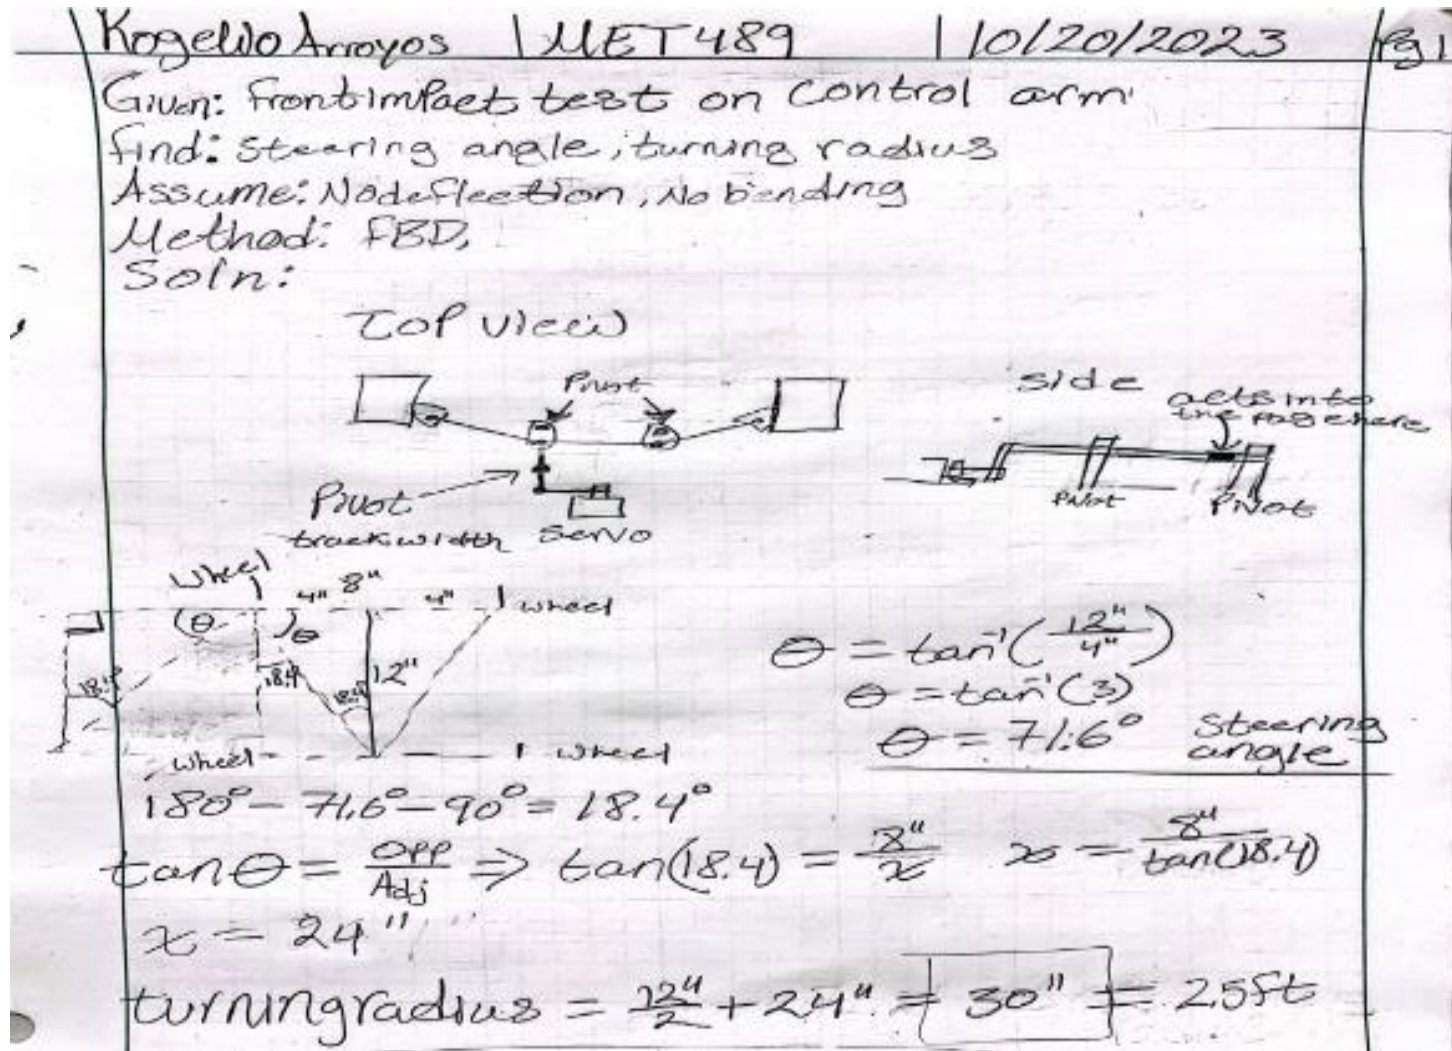 Rogelio Arroyos | MET 489 | 10/20/2023 Pg 1
Given: Front impact test on control arm
Find: Steering angle, turning radius
Assume: No deflection, No bending
Method: FBD,
Soln:
Top View
Pivot
side
acts into
the page here
Pivot
Servo
Pivot
Pivot
track width
wheel
4" 8" 4"
wheel
θ
θ
18.4
18.4
18.4
12"
wheel
wheel
θ = tan⁻¹(12"/4")
θ = tan⁻¹(3)
θ = 71.6° Steering
angle
180° - 71.6° - 90° = 18.4°
tan θ = Opp/Adj => tan(18.4) = 8"/x x = 8"/tan(18.4)
x = 24"
turning radius = 12"/2 + 24" = 30" = 2.5ft